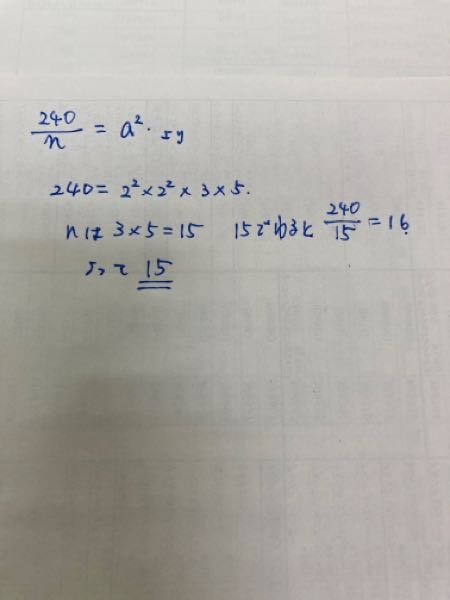 240/n = a². より
240 = 2² × 2² × 3 × 5.
nは 3 × 5 = 15 15でわると 240/15 = 16.
よって 15